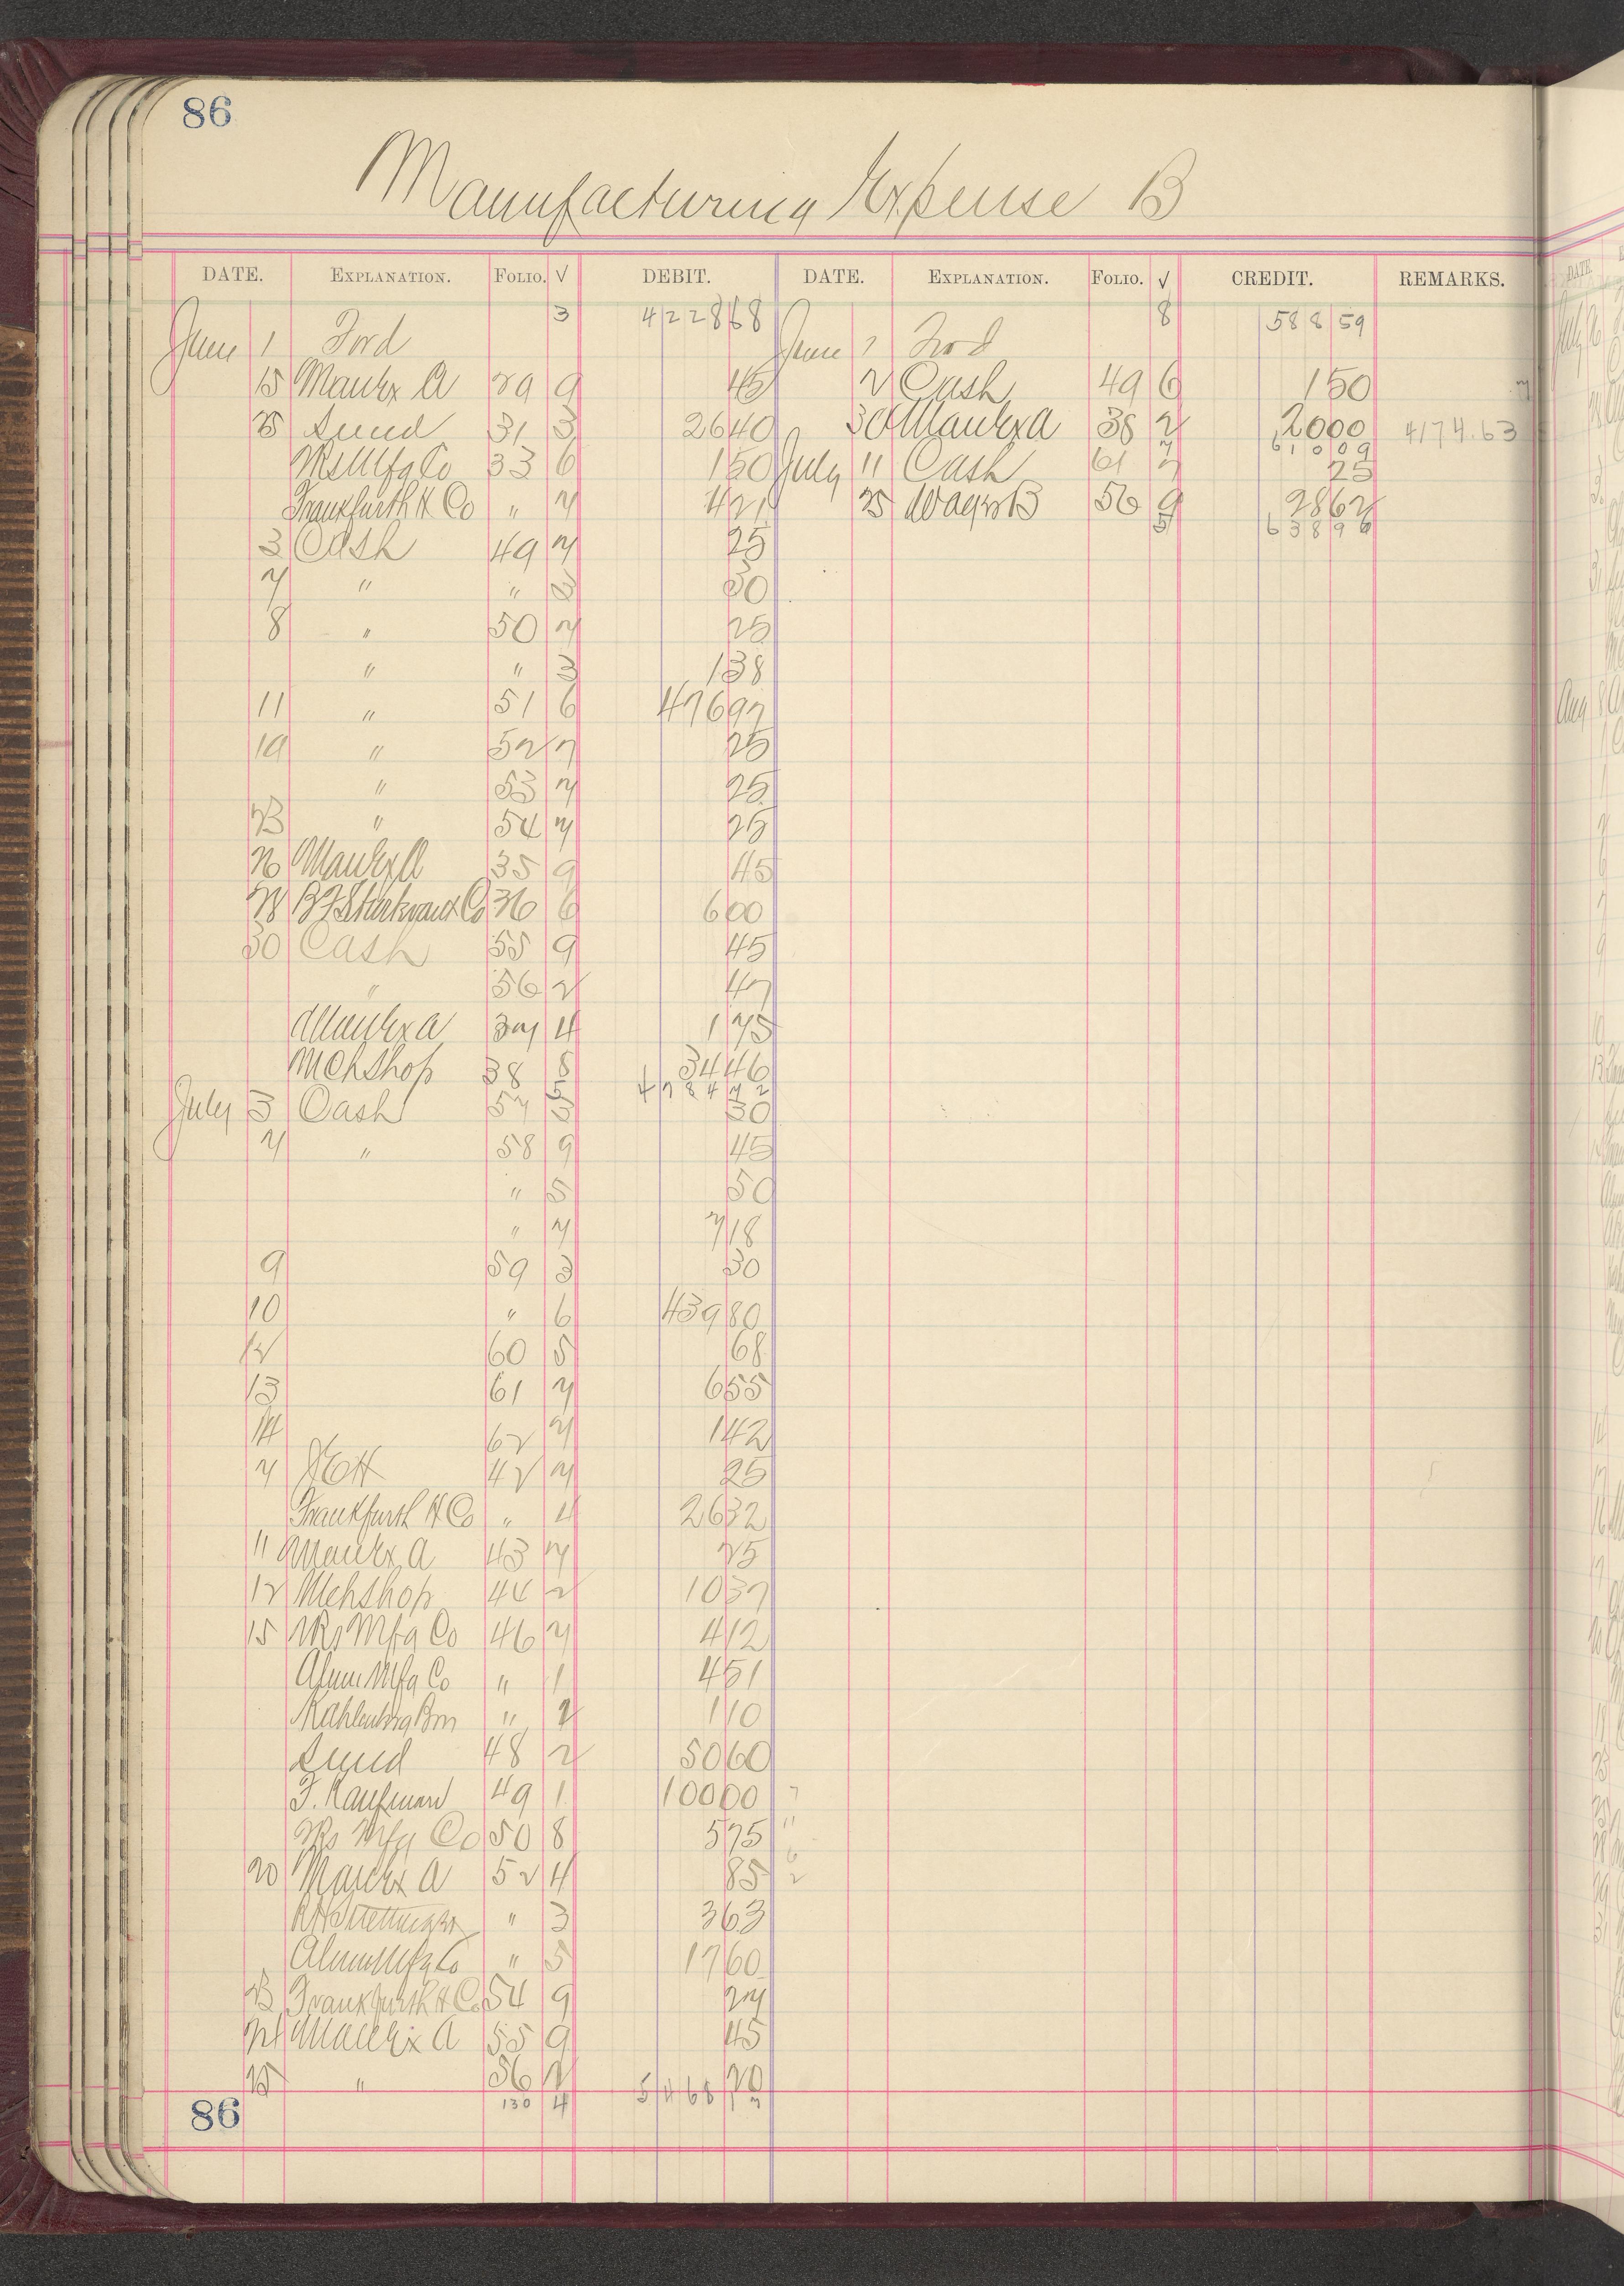 86
Manufacturing Expense B
DATE. EXPLANATION. FOLIO. √ DEBIT. DATE. EXPLANATION. FOLIO. √ CREDIT. REMARKS.
3 4228 68 8 588 59
June 1 Ford June 1 Ford
15 Manfx A 29 9 45 2 Cash 49 6 1 50
25 Sund 31 3 26 40 30 Manfx A 38 2 20 00 4174.63
7 610 09
Mfg Co 33 6 1 50 July 11 Cash 61 7 25
Frankfurth H Co " 7 4 21 25 Wages B 56 9 28 62
5 638 96
3 Cash 49 7 25
7 " " 3 30
8 " 50 7 25
" " 3 1 38
11 " 51 6 476 97
19 " 52 7 25
" 53 7 25
23 " 54 7 25
26 Manfx A 35 9 45
28 Co 36 6 6 00
30 Cash 55 9 45
" 56 2 47
Manfx A 37 4 1 75
Mch Shop 38 8 34 46
5 4784 72
July 3 Cash 57 3 30
7 " 58 9 45
" 5 50
" 7 7 18
9 59 3 30
10 " 6 439 80
12 60 5 68
13 61 7 6 55
14 62 7 1 42
7 42 7 25
Frankfurth H Co " 4 26 32
11 Manfx A 43 7 25
12 Mch Shop 44 2 10 37
15 Mfg Co 46 7 4 12
Alum Mfg Co " 1 4 51
Kahlenberg Bros " 2 1 10
Sund 48 2 50 60
F. Kaufman 49 1 100 00
Mfg Co 50 8 5 75
20 Manfx A 52 4 85
" 3 3 63
Alum Mfg Co " 5 17 60
23 Frankfurth H Co 54 9 27
24 Manfx A 55 9 45
25 " 56 2 20
86 130 4